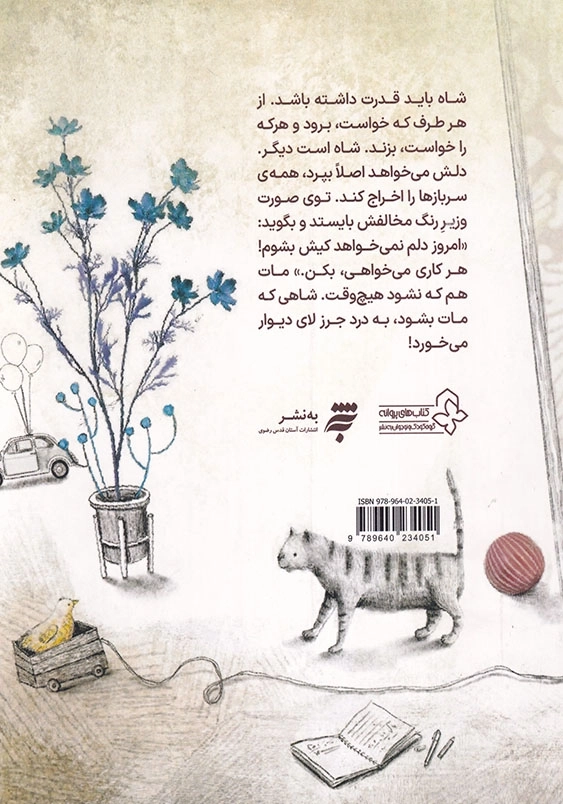 شاه باید قدرت داشته باشد. از
هر طرف که خواست، برود و هرکه
را خواست، بزند. شاه است دیگر.
دلش می‌خواهد اصلاً بپرد، همه‌ی
سربازها را اخراج کند. توی صورت
وزیرِ رنگ مخالفش بایستد و بگوید:
«امروز دلم نمی‌خواهد کیش بشوم!
هر کاری می‌خواهی، بکن.» مات
هم که نشود هیچ‌وقت. شاهی که
مات بشود، به درد جرز لای دیوار
می‌خورد!
کتاب‌های پروانه
گروه کودک و نوجوان به‌نشر
به‌نشر
انتشارات آستان قدس رضوی
ISBN 978-964-02-3405-1
9 789640 234051